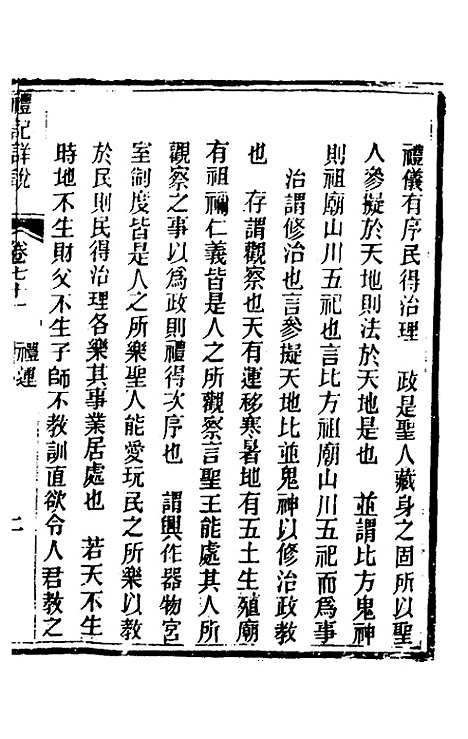 禮儀有序民得治理　政是聖人藏身之固所以聖
人參擬於天地則法於天地是也　並謂比方鬼神
則祖廟山川五祀也言比方祖廟山川五祀而爲事
治謂修治也言參擬天地比並鬼神以修治政教
也　存謂觀察也天有運移寒暑地有五土生殖廟
有祖禰仁義皆是人之所觀察言聖王能處其人所
觀察之事以爲政則禮得次序也　謂興作器物宮
室制度皆是人之所樂聖人能愛玩民之所樂以教
於民則民得治理各樂其事業居處也　若天不生
時地不生財父不生子師不教訓直欲令人君教之
禮記詳說　卷七十一　禮運　二